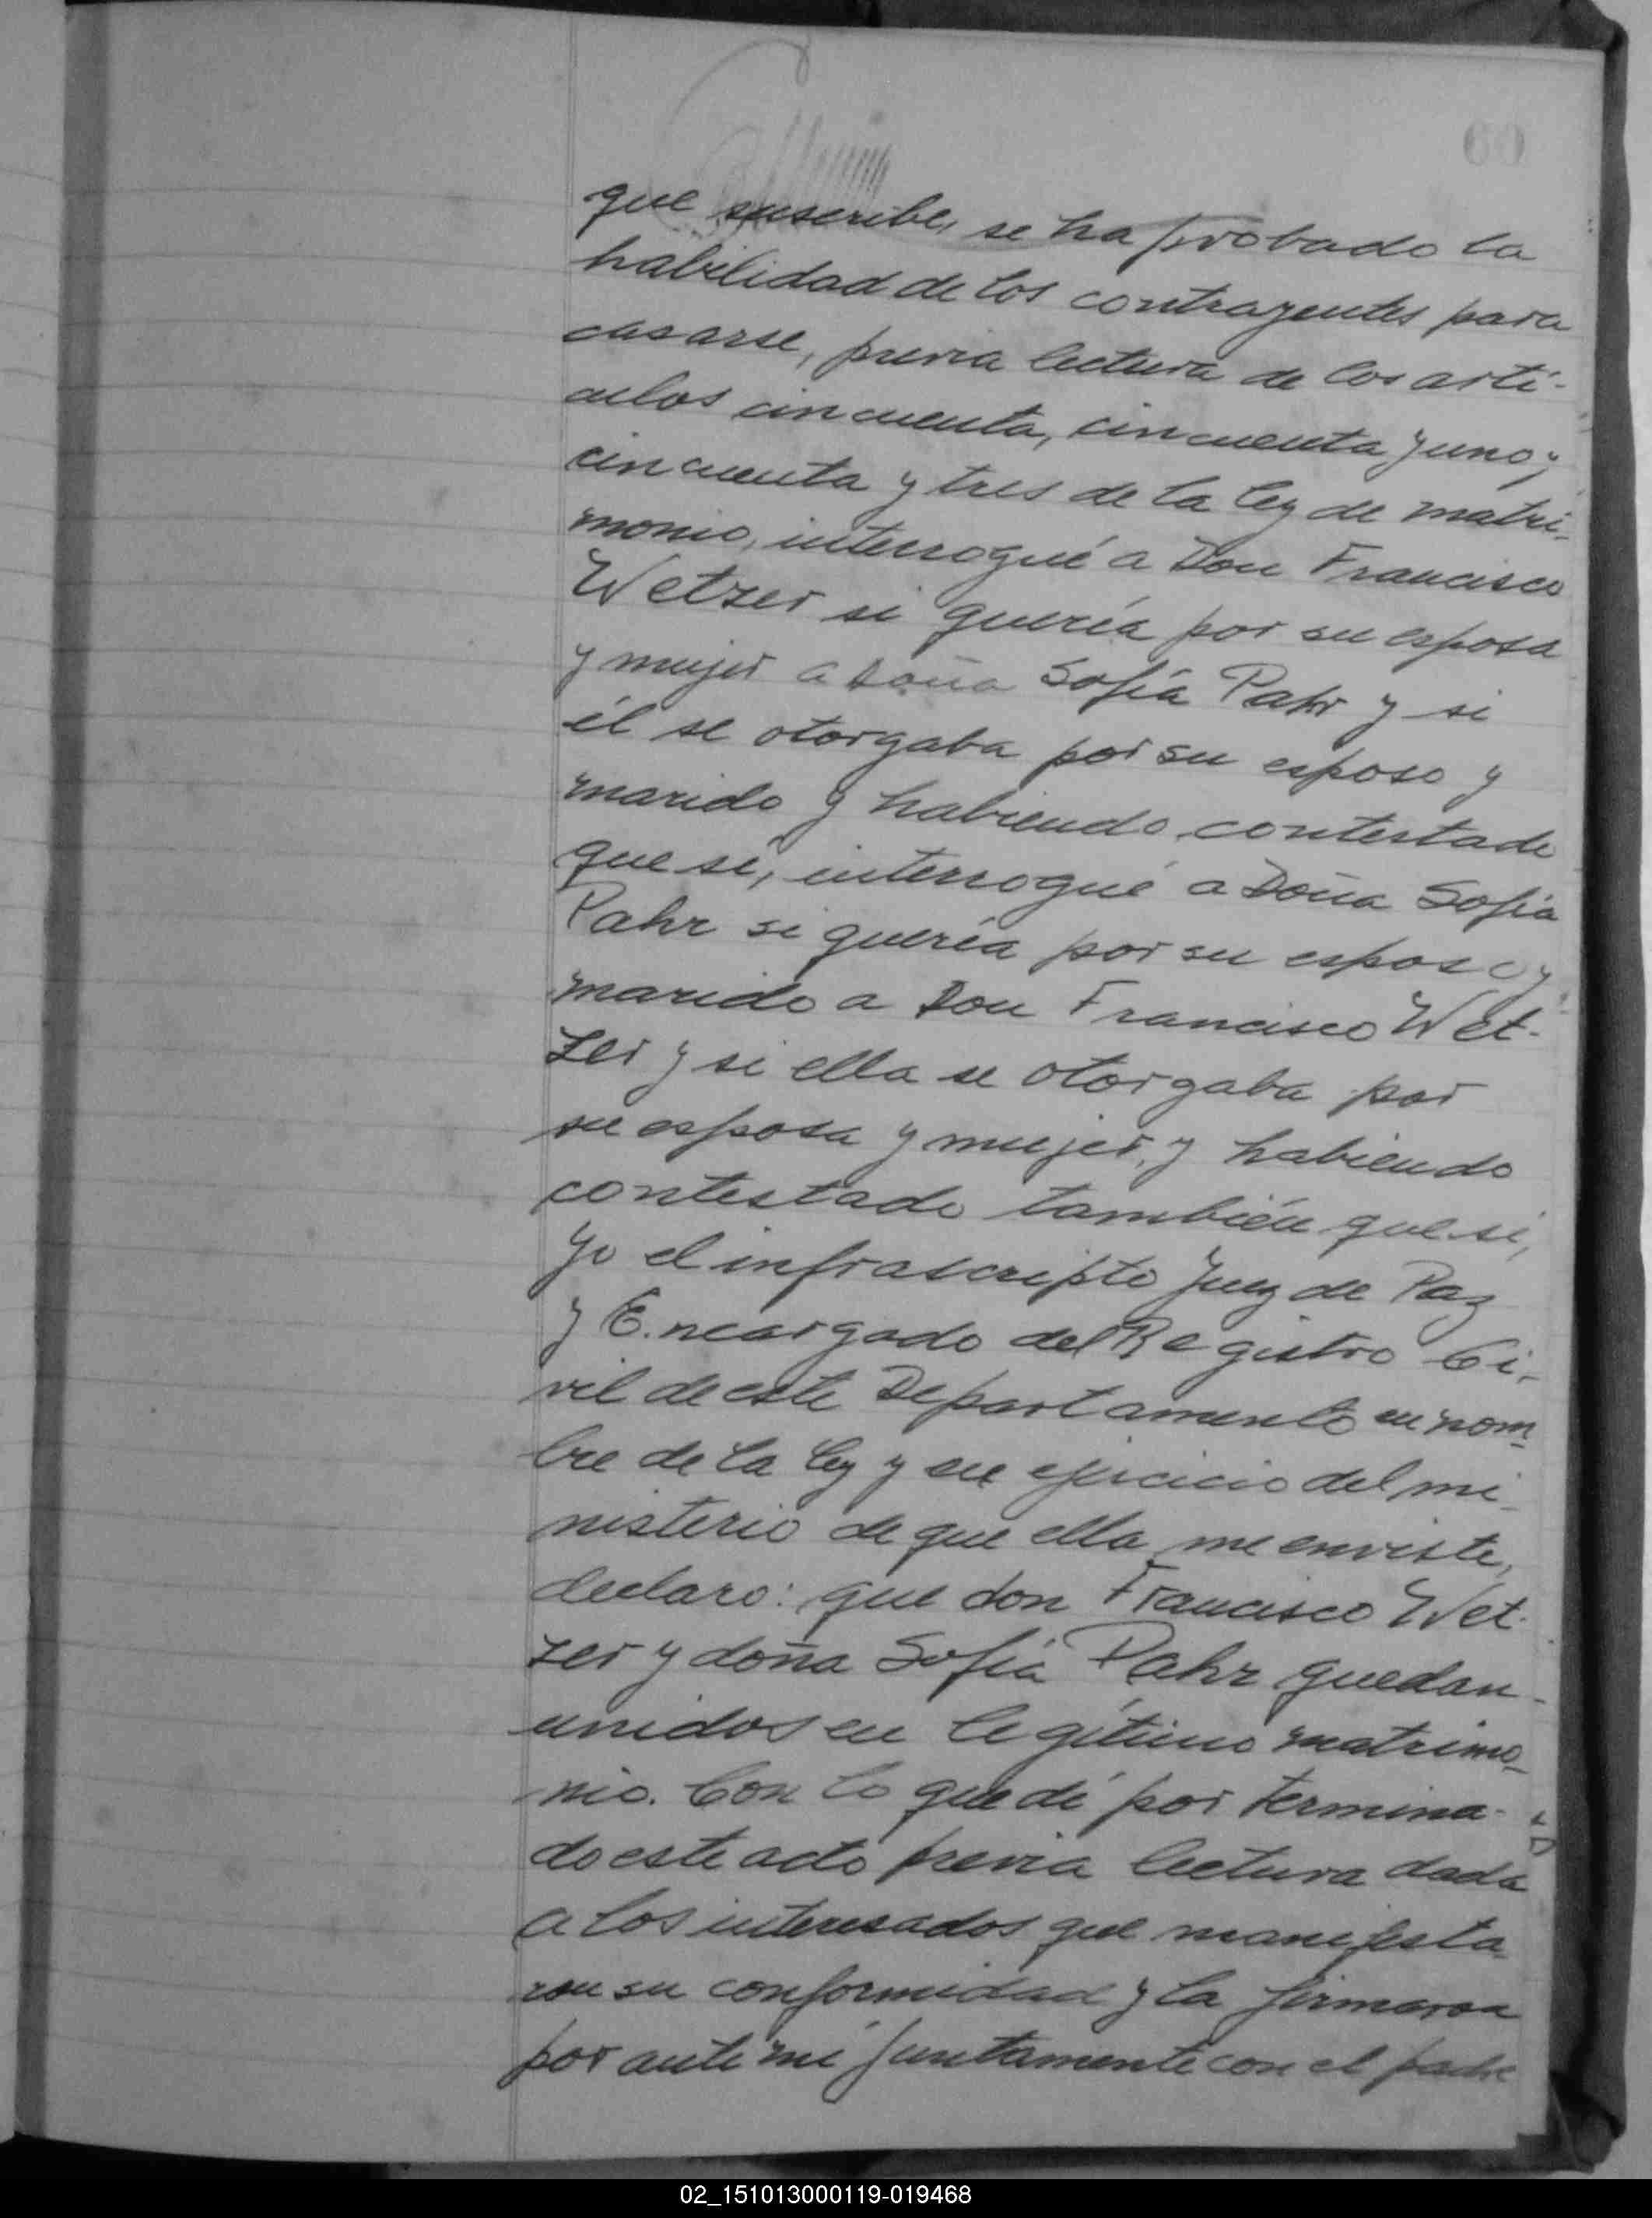 60
que suscribe, se ha probado la
habilidad de los contrayentes para
casarse, previa lectura de los artí-
culos cincuenta, cincuenta y uno y
cincuenta y tres de la ley de matri-
monio, interrogué a Don Francisco
Wetzer si quería por su esposa
y mujer a Doña Sofía Pahr y si
él se otorgaba por su esposo y
marido y habiendo contestado
que sí, interrogué a Doña Sofía
Pahr si quería por su esposo y
marido a Don Francisco Wet-
zer y si ella se otorgaba por
su esposa y mujer, y habiendo
contestado también que sí,
yo el infrascripto Juez de Paz
y Encargado del Registro Ci-
vil de este Departamento en nom-
bre de la ley y en ejercicio del mi-
nisterio de que ella me enviste,
declaro: que don Francisco Wet-
zer y doña Sofía Pahr quedan
unidos en legítimo matrimo-
nio. Con lo que dí por termina-
do este acto previa lectura dada
a los interesados que manifesta-
ron su conformidad y la firmaron
por ante mí juntamente con el padre
02_151013000119-019468